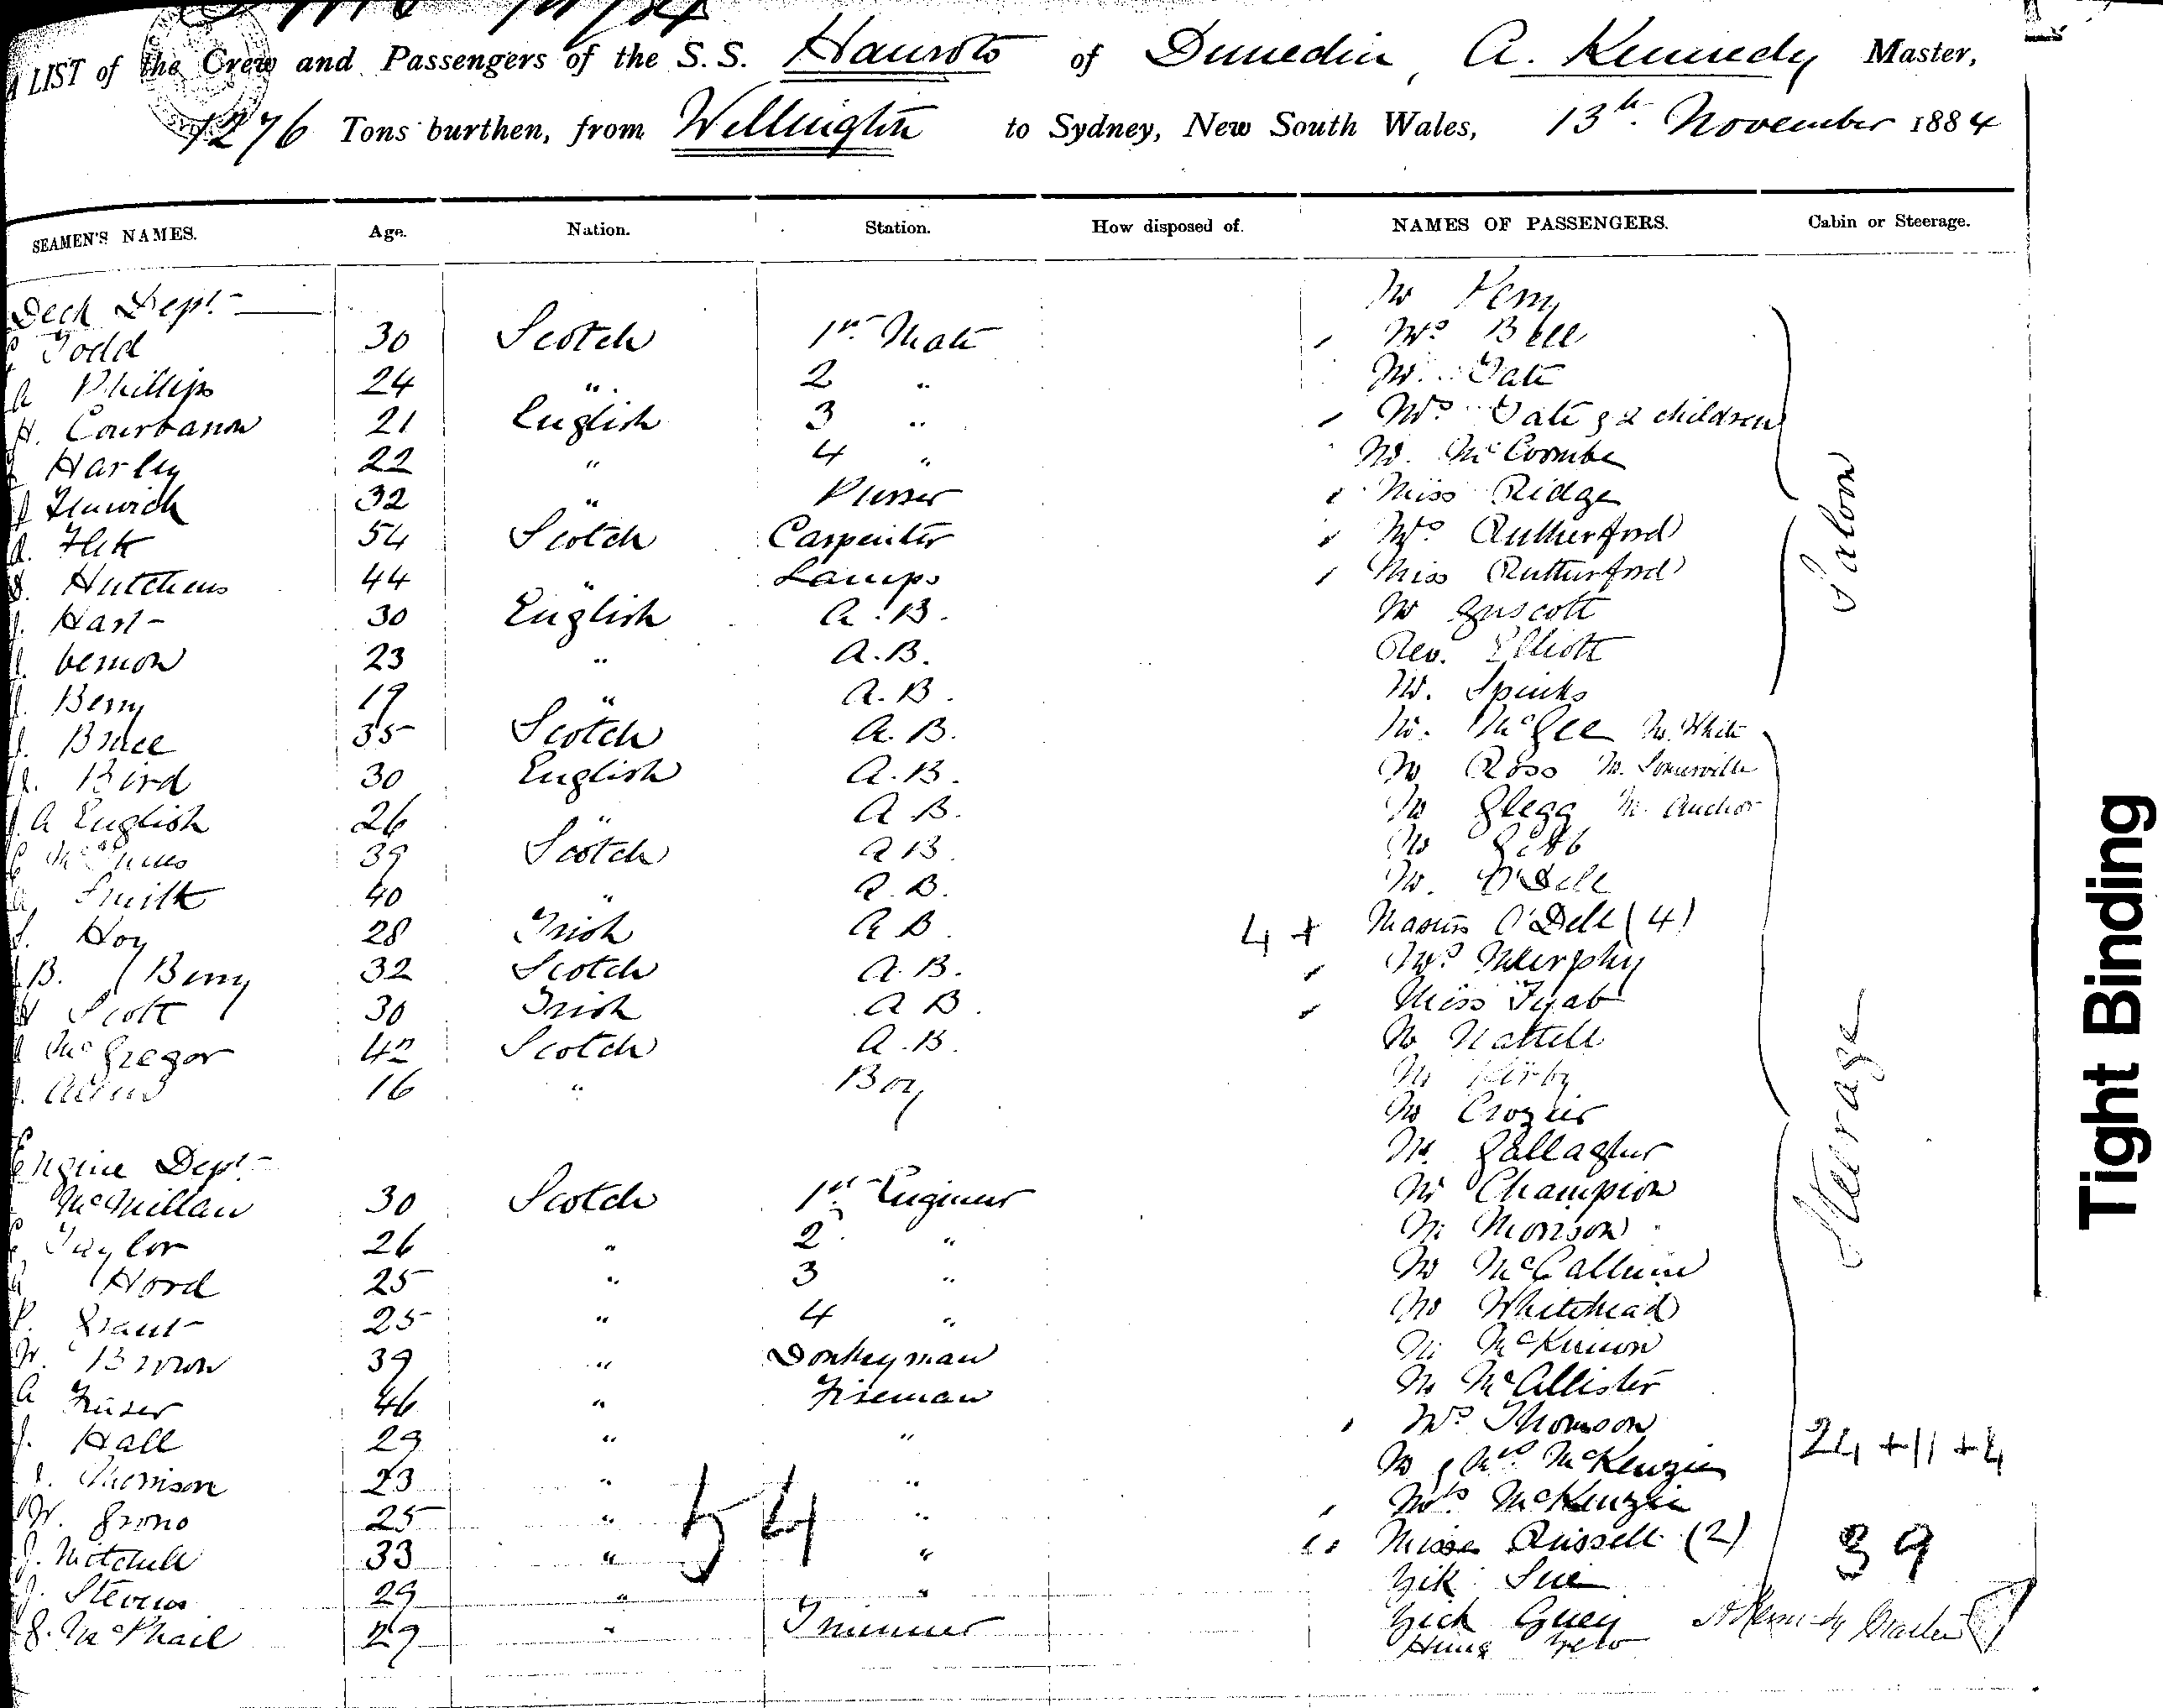 A LIST of the Crew and Passengers of the S.S. Hauroto of Dunedin, A. Kennedy Master,
1276 Tons burthen, from Wellington to Sydney, New South Wales, 13th November 1884
SEAMEN'S NAMES. Age. Nation. Station. How disposed of. NAMES OF PASSENGERS. Cabin or Steerage.
Deck Dept. Mr Perry
Todd 30 Scotch 1st Mate Mrs Bell
A Phillips 24 " 2 " Mr. Tate
H. Courbarron 21 English 3 " Mrs Tate & 2 children
Harley 22 " 4 " Mr. McCoombe
Fenwick 32 " Purser Miss Ridge
54 Scotch Carpenter Mrs Rutherford
Hutchens 44 " Lamps Miss Rutherford
J. Hart 30 English A.B. Mr Guscott
Vernon 23 " A.B. Rev. Elliott
J. Berry 19 " A.B. Mr. Spinks
J. Bruce 35 Scotch A.B. Mr. McGee Mr. White
Bird 30 English A.B. Mr Ross Mr. Somerville
A English 26 " A.B. Mr Glegg Mr. Anchor
39 Scotch A.B. Mr Gibb
Smith 40 " A.B. Mr. O'Dell
Hoy 28 Irish A B. 4 + Masters O'Dell (4)
B. Berry 32 Scotch A.B. Mrs Murphy
Scott 30 Irish A B. Miss
McGregor 42 Scotch A.B. Mr Nattell
16 " Boy Mr Kirby
Mr Crozier
Engine Dept. Mr. Gallagher
McMillan 30 Scotch 1st Engineer Mr Champion
Taylor 26 " 2 " Mr Morrison
Hord 25 " 3 " Mr McCallum
P. Grant 25 " 4 " Mr Whitehead
W. Brown 39 " Donkeyman Mr McKinnon
A Fraser 46 " Fireman Mr McAllister
J. Hall 29 " " Mrs Thomson
Morrison 23 " " Mr & Mrs McKenzie
W. Grono 25 " " Mrs McKenzie
J. Mitchell 33 " " Misses Russell (2)
J. Stevens 29 " " Yik Sue
J. McPhail 29 " Trimmer Yick Guey
Hung Yew
Saloon
Steerage
24 + 11 + 4
39
54
A Kennedy Master
Tight Binding